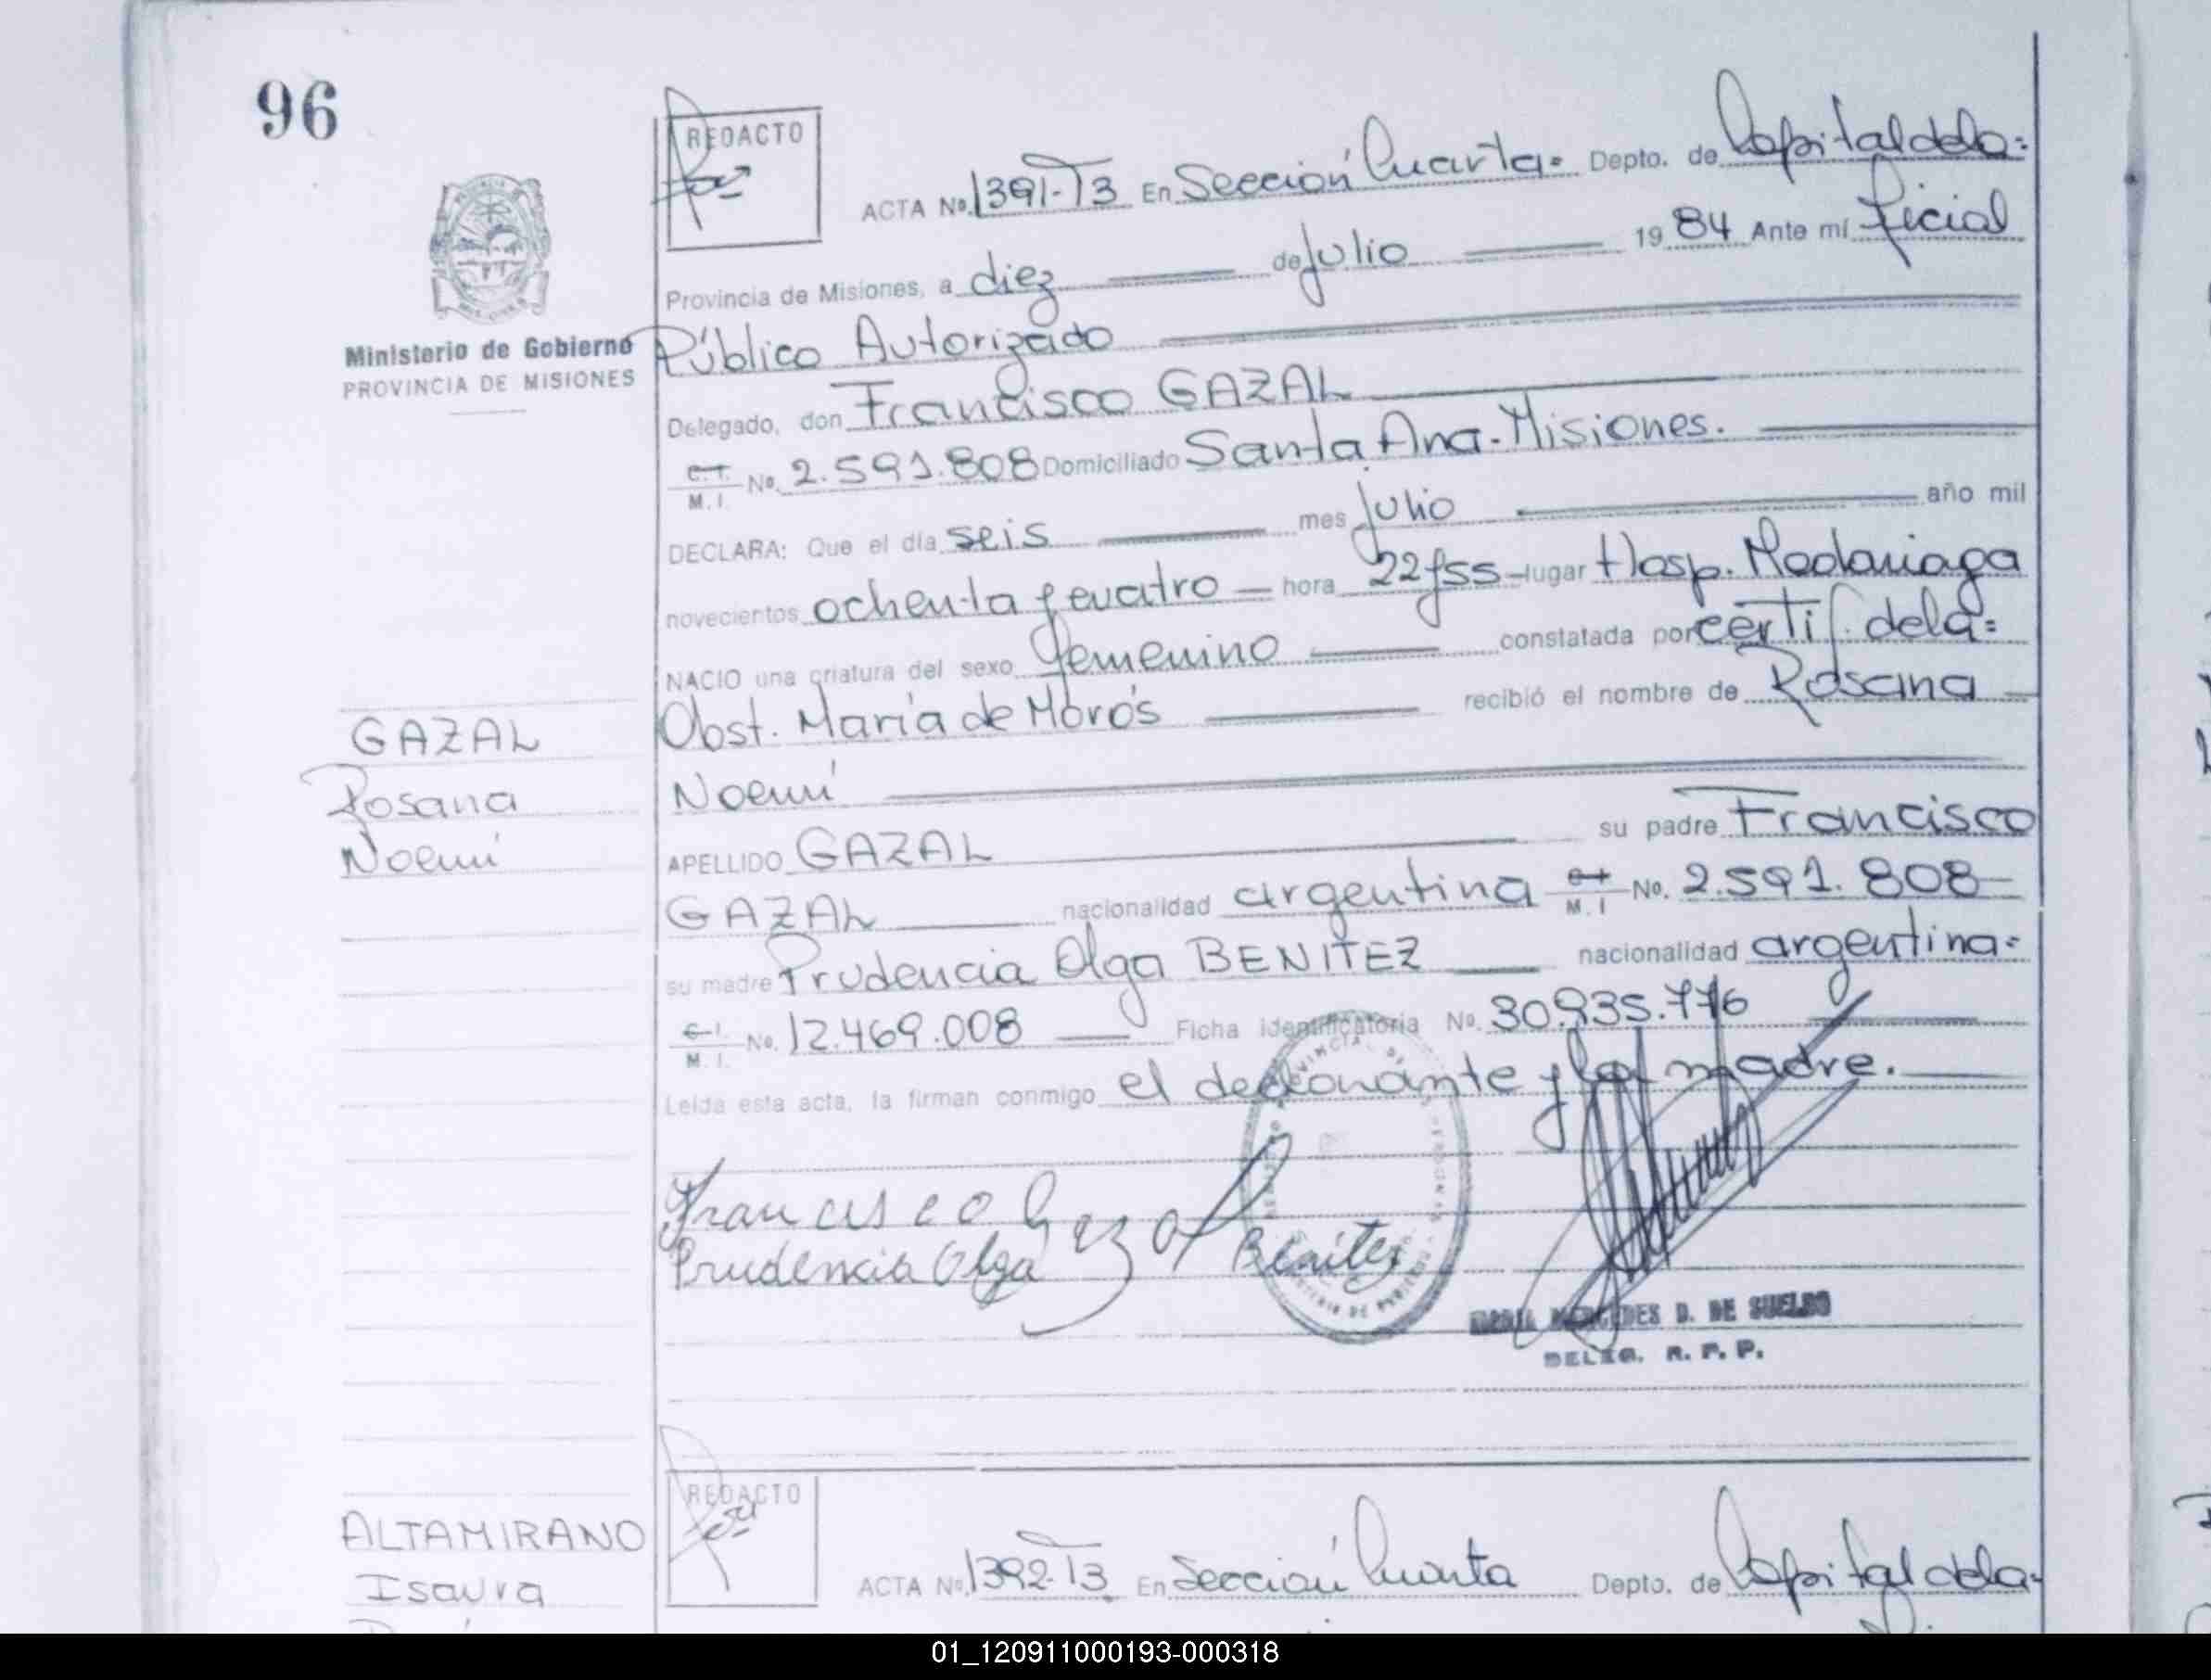 96
REDACTO
ACTA Nº. 1391-T3 En Sección Cuarta= Depto. de Capital dela=
Provincia de Misiones, a diez de Julio 19 84 Ante mí ficial
Público Autorizado
Ministerio de Gobierno
PROVINCIA DE MISIONES
Delegado, don Francisco GAZAL
C.I. M.I. No. 2.591.808 Domiciliado Santa Ana-Misiones.
DECLARA: Que el día seis mes Julio año mil
novecientos ochenta y cuatro hora 22y55 lugar Hosp. Madariaga
NACIO una criatura del sexo femenino constatada por certif. dela=
Obst. María de Morós recibió el nombre de Rosana
Noemí
GAZAL
Rosana
Noemí
APELLIDO GAZAL su padre Francisco
GAZAL nacionalidad argentina C.I. M.I No. 2.591.808
su madre Prudencia Olga BENITEZ nacionalidad argentina=
C.I. M.I. No. 12.469.008 Ficha identificatoria No. 30.935.776
Leída esta acta, la firman conmigo el declarante y la madre.
Francisco Gazal
Prudencia Olga Benitez
MARIA MERCEDES D. DE SUELDO
DELEG. R. P. P.
ALTAMIRANO
Isaura
REDACTO
ACTA Nº. 1392-T3. En Sección Cuarta Depto. de Capital dela-
01_120911000193-000318